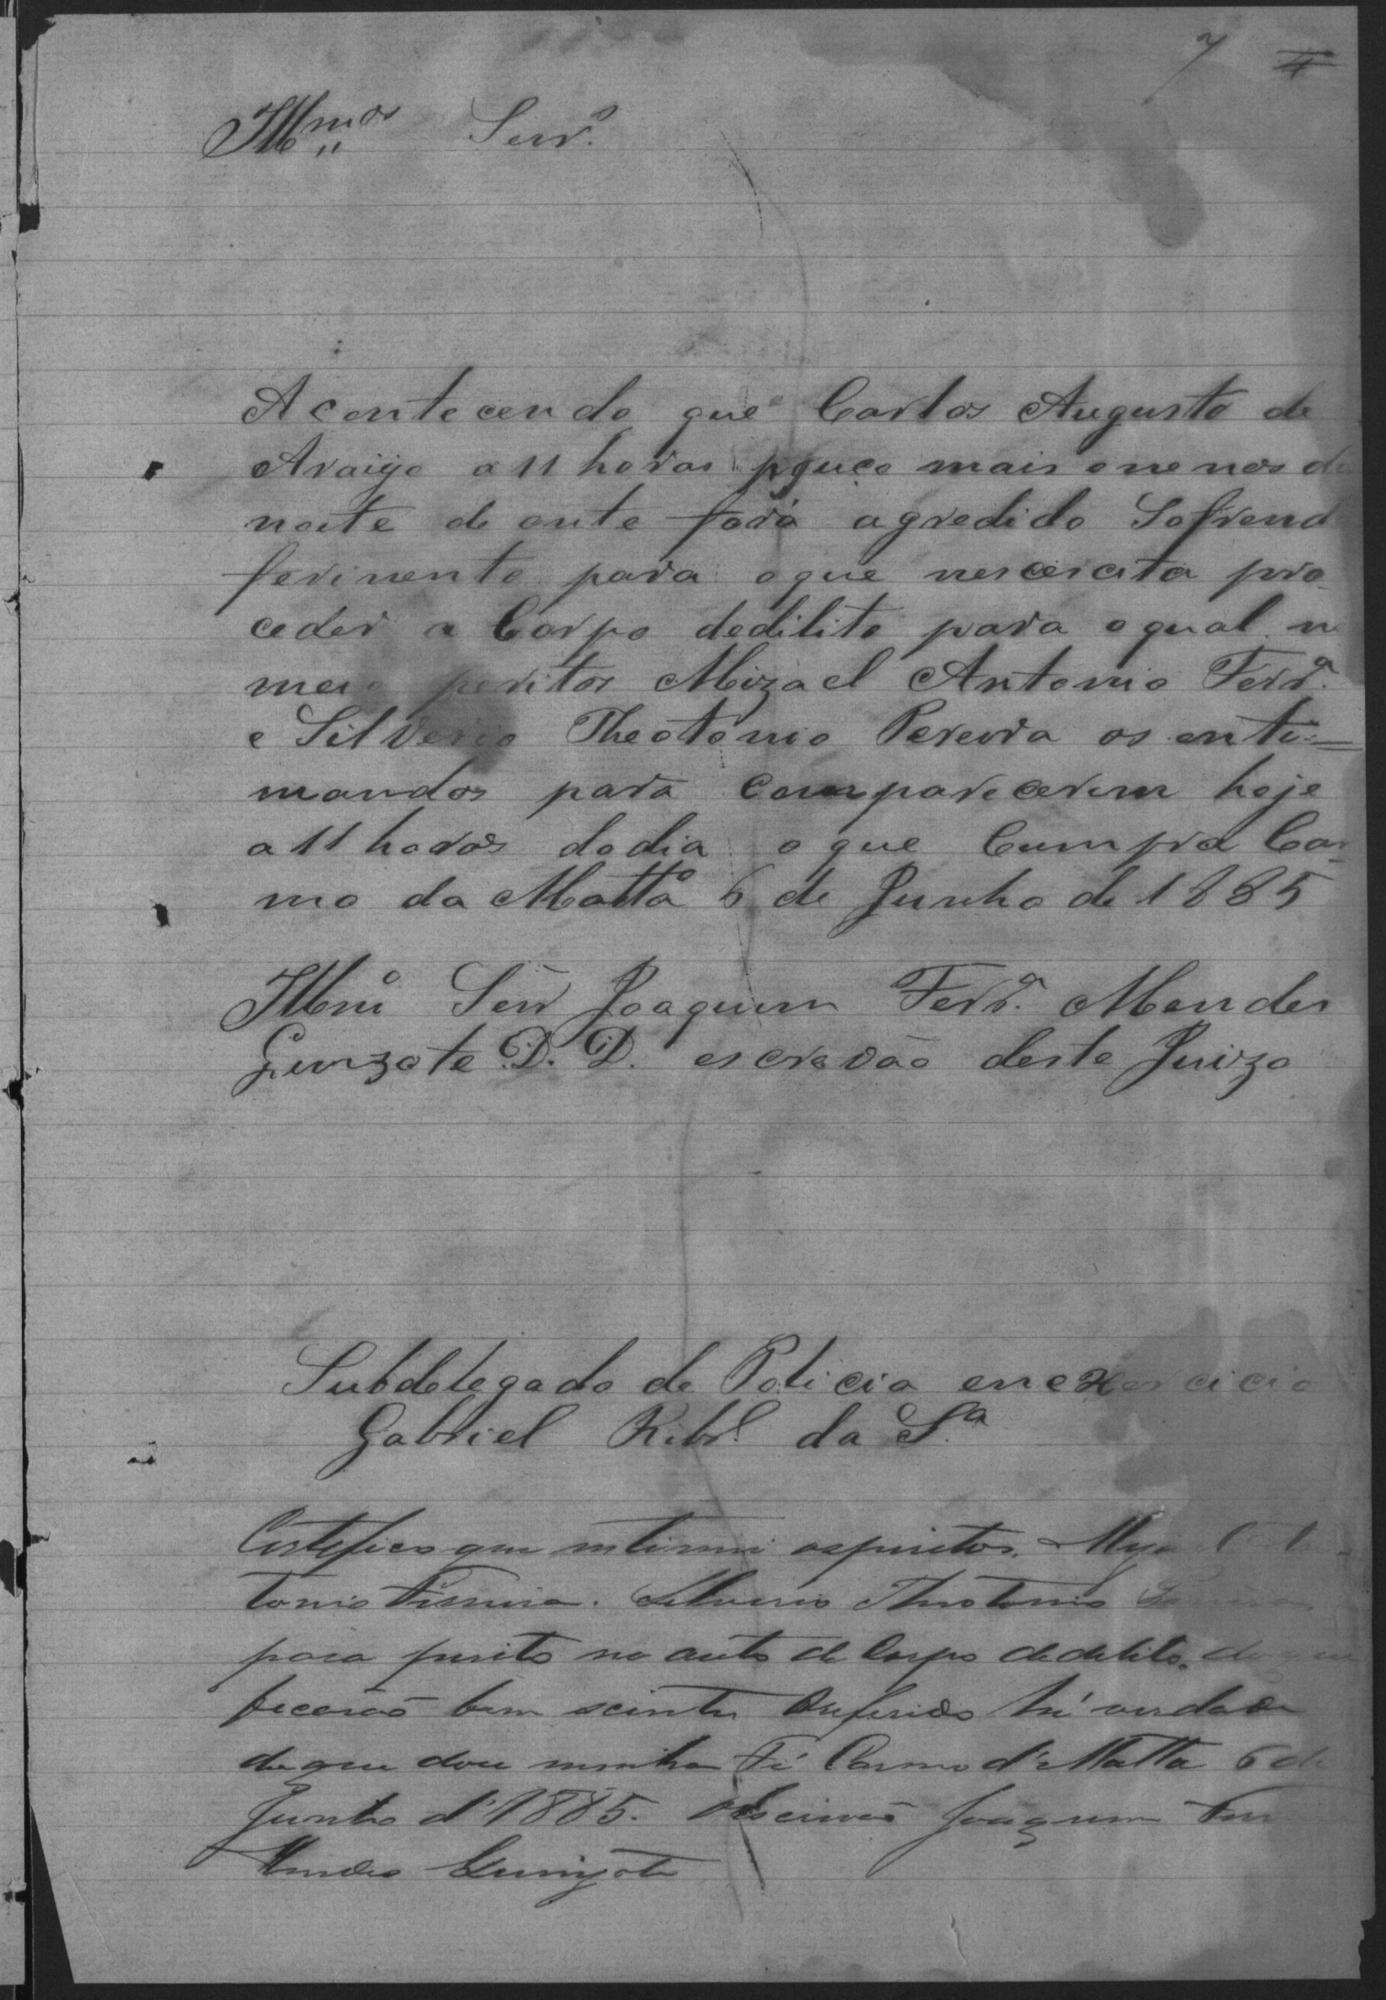 7 4
Illmos Senr.
Acontecendo que Carlos Augusto de
Araujo a 11 horas pouco mais ou menos da
noite de onte fora agredido Sofrend
ferimento para oque nescescita pro
ceder a Corpo dedilito para oqual n
meio peritos Mizael Antonio Ferr.a
e Silverio Theotonio Pereira os enti=
mandos para comparecerem hoje
a 11 horas dodia oque Cumpra Car
mo da Matta 6 de Junho de 1885
Illmo Senr Joaquim Ferr.a Mendes
Gunzote D. D. escrivão deste Juizo
Subdelegado de Policia enexercicio
Gabriel Ribr. da S.a
Certefico que intimei osperitos Mizael An
tonio Ferreira. Silverio Theotonio
para perito no auto de Corpo dedelito. do que
ficarão bem scientes Oreferido hé verdade
do que dou minha Fé Carmo d'Matta 6 de
Junho d'1885. Oescrivão Joaquim Ferr
Mendes